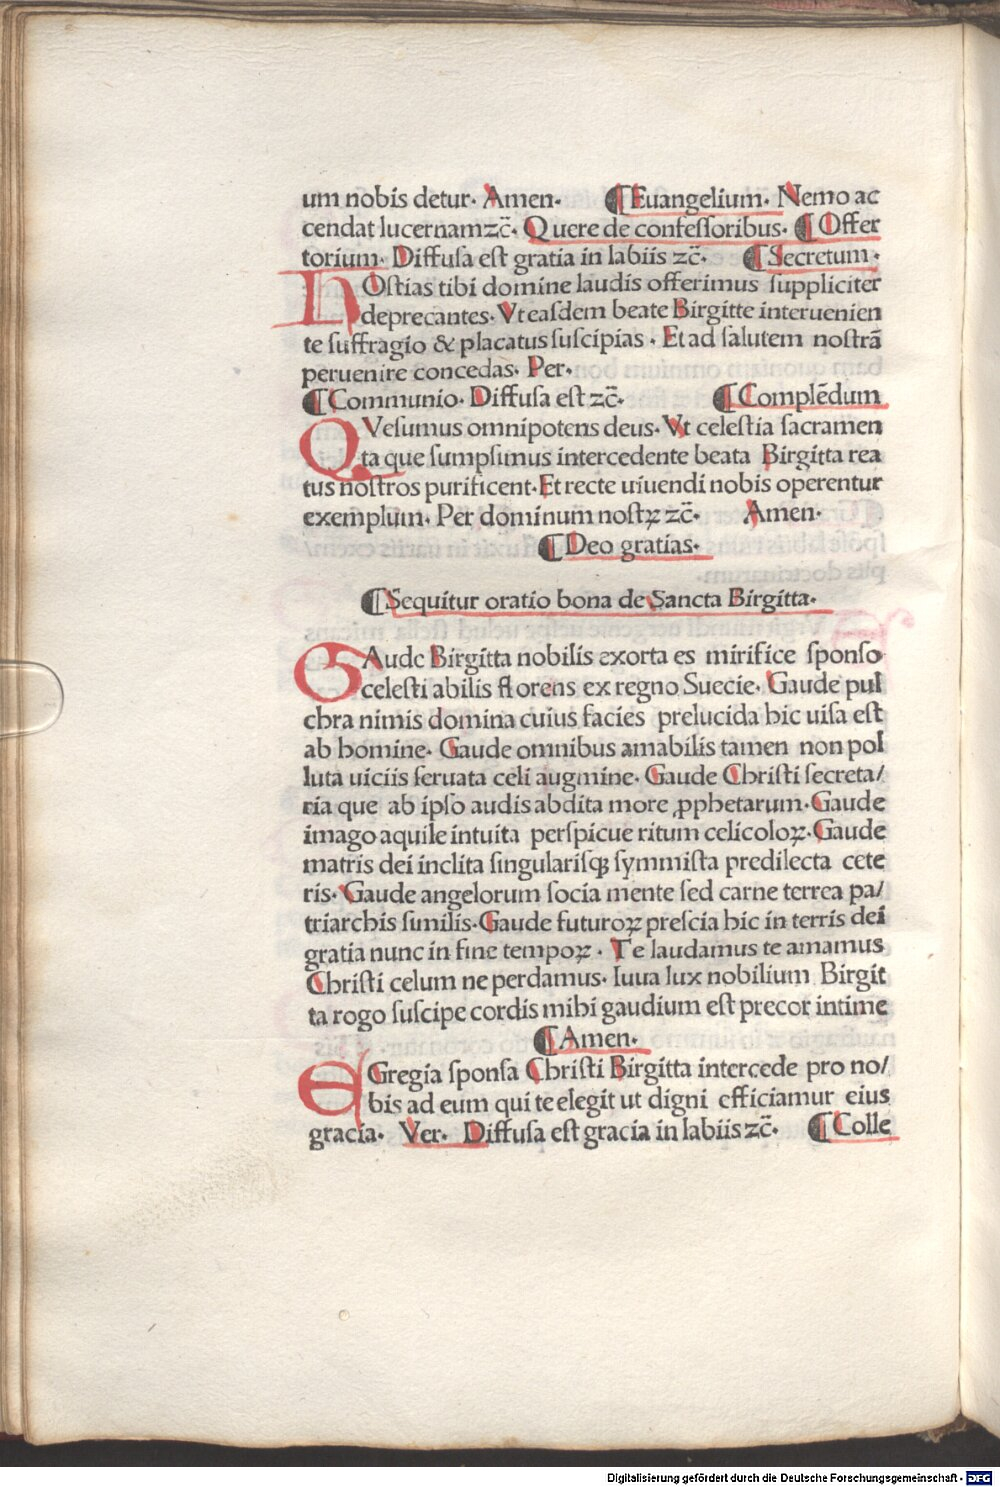 um nobis detur· Amen· ¶Euangelium· Nemo ac
cendat lucernam ⁊c̄· Quere de confeſſoribus· ¶Offer
torium· Diffuſa eſt gratia in labiis ⁊c̄· ¶Secretum·
HOſtias tibi domine laudis offerimus ſuppliciter
deprecantes· Vt easdem beate Birgitte interuenien
te ſuffragio & placatus ſuſcipias · Et ad ſalutem noſtrā
peruenire concedas· Per·
¶Communio· Diffuſa eſt ⁊c̄· ¶Complēdum
QVeſumus omnipotens deus· Vt celeſtia ſacramen
ta que ſumpſimus intercedente beata Birgitta rea
tus noſtros purificent· Et recte uiuendi nobis operentur
exemplum· Per dominum noſtꝝ ⁊c̄· Amen·
¶Deo gratias·
¶Sequitur oratio bona de Sancta Birgitta·
GAude Birgitta nobilis exorta es mirifice ſponſo
celeſti abilis florens ex regno Suecie· Gaude pul
chra nimis domina cuius facies prelucida hic uiſa eſt
ab homine· Gaude omnibus amabilis tamen non pol
luta uiciis ſeruata celi augmine· Gaude Chriſti ſecreta/
ria que ab ipſo audis abdita more ꝓphetarum· Gaude
imago aquile intuita perſpicue ritum celicoloꝝ· Gaude
matris dei inclita ſingulariſqꝫ ſymmiſta predilecta cete
ris· Gaude angelorum ſocia mente ſed carne terrea pa/
triarchis ſimilis· Gaude futuroꝝ preſcia hic in terris dei
gratia nunc in fine tempoꝝ · Te laudamus te amamus
Chriſti celum ne perdamus· Iuua lux nobilium Birgit
ta rogo ſuſcipe cordis mihi gaudium eſt precor intime
¶Amen·
EGregia ſponſa Chriſti Birgitta intercede pro no/
bis ad eum qui te elegit ut digni efficiamur eius
gracia· Ver· Diffuſa eſt gracia in labiis ⁊c̄· ¶Colle
Digitalisierung gefördert durch die Deutsche Forschungsgemeinschaft · DFG